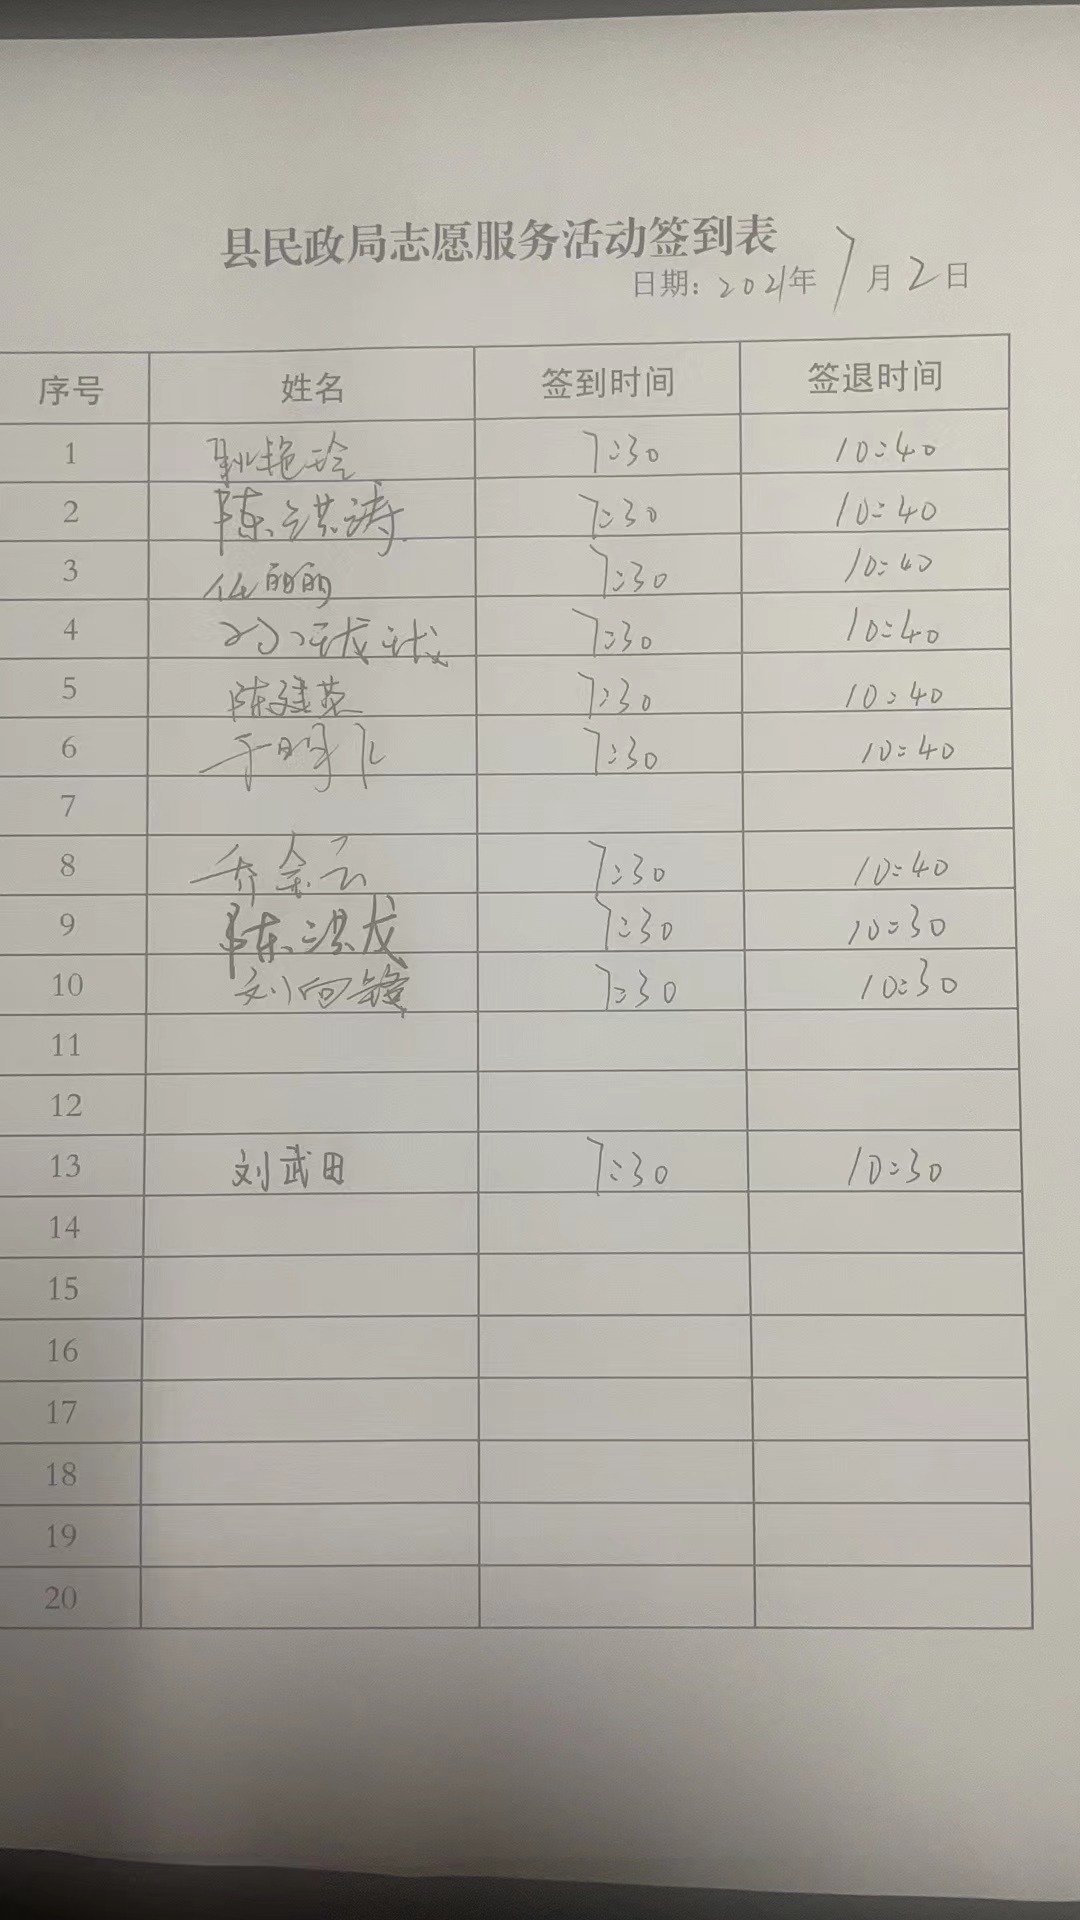 县民政局志愿服务活动签到表
日期：2021年7月2日
序号 姓名 签到时间 签退时间
1 耿艳玲 7:30 10:40
2 陈洪涛 7:30 10:40
3 丽丽 7:30 10:40
4 7:30 10:40
5 陈建英 7:30 10:40
6 7:30 10:40
7
8 乔金云 7:30 10:40
9 陈洪龙 7:30 10:30
10 刘向锋 7:30 10:30
11
12
13 刘武田 7:30 10:30
14
15
16
17
18
19
20